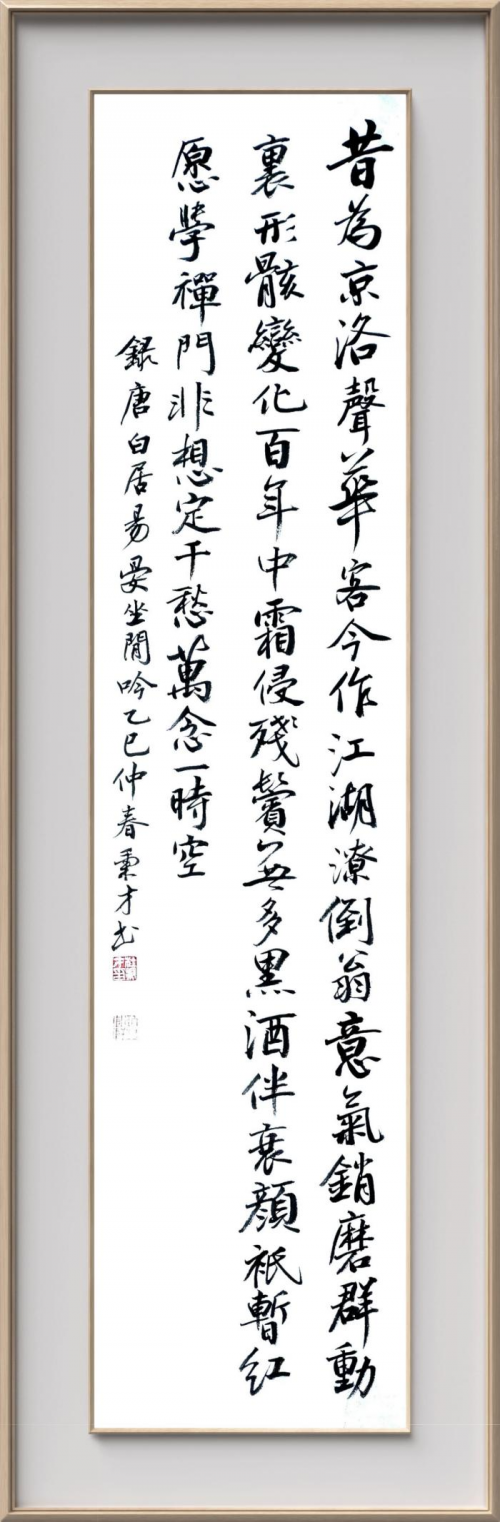 昔為京洛聲華客今作江湖潦倒翁意氣銷磨群動
裏形骸變化百年中霜侵殘鬢無多黑酒伴衰顏祇暫红
愿學禪門非想定千愁萬念一時空
錄唐白居易晏坐閒吟乙巳仲春秉才书